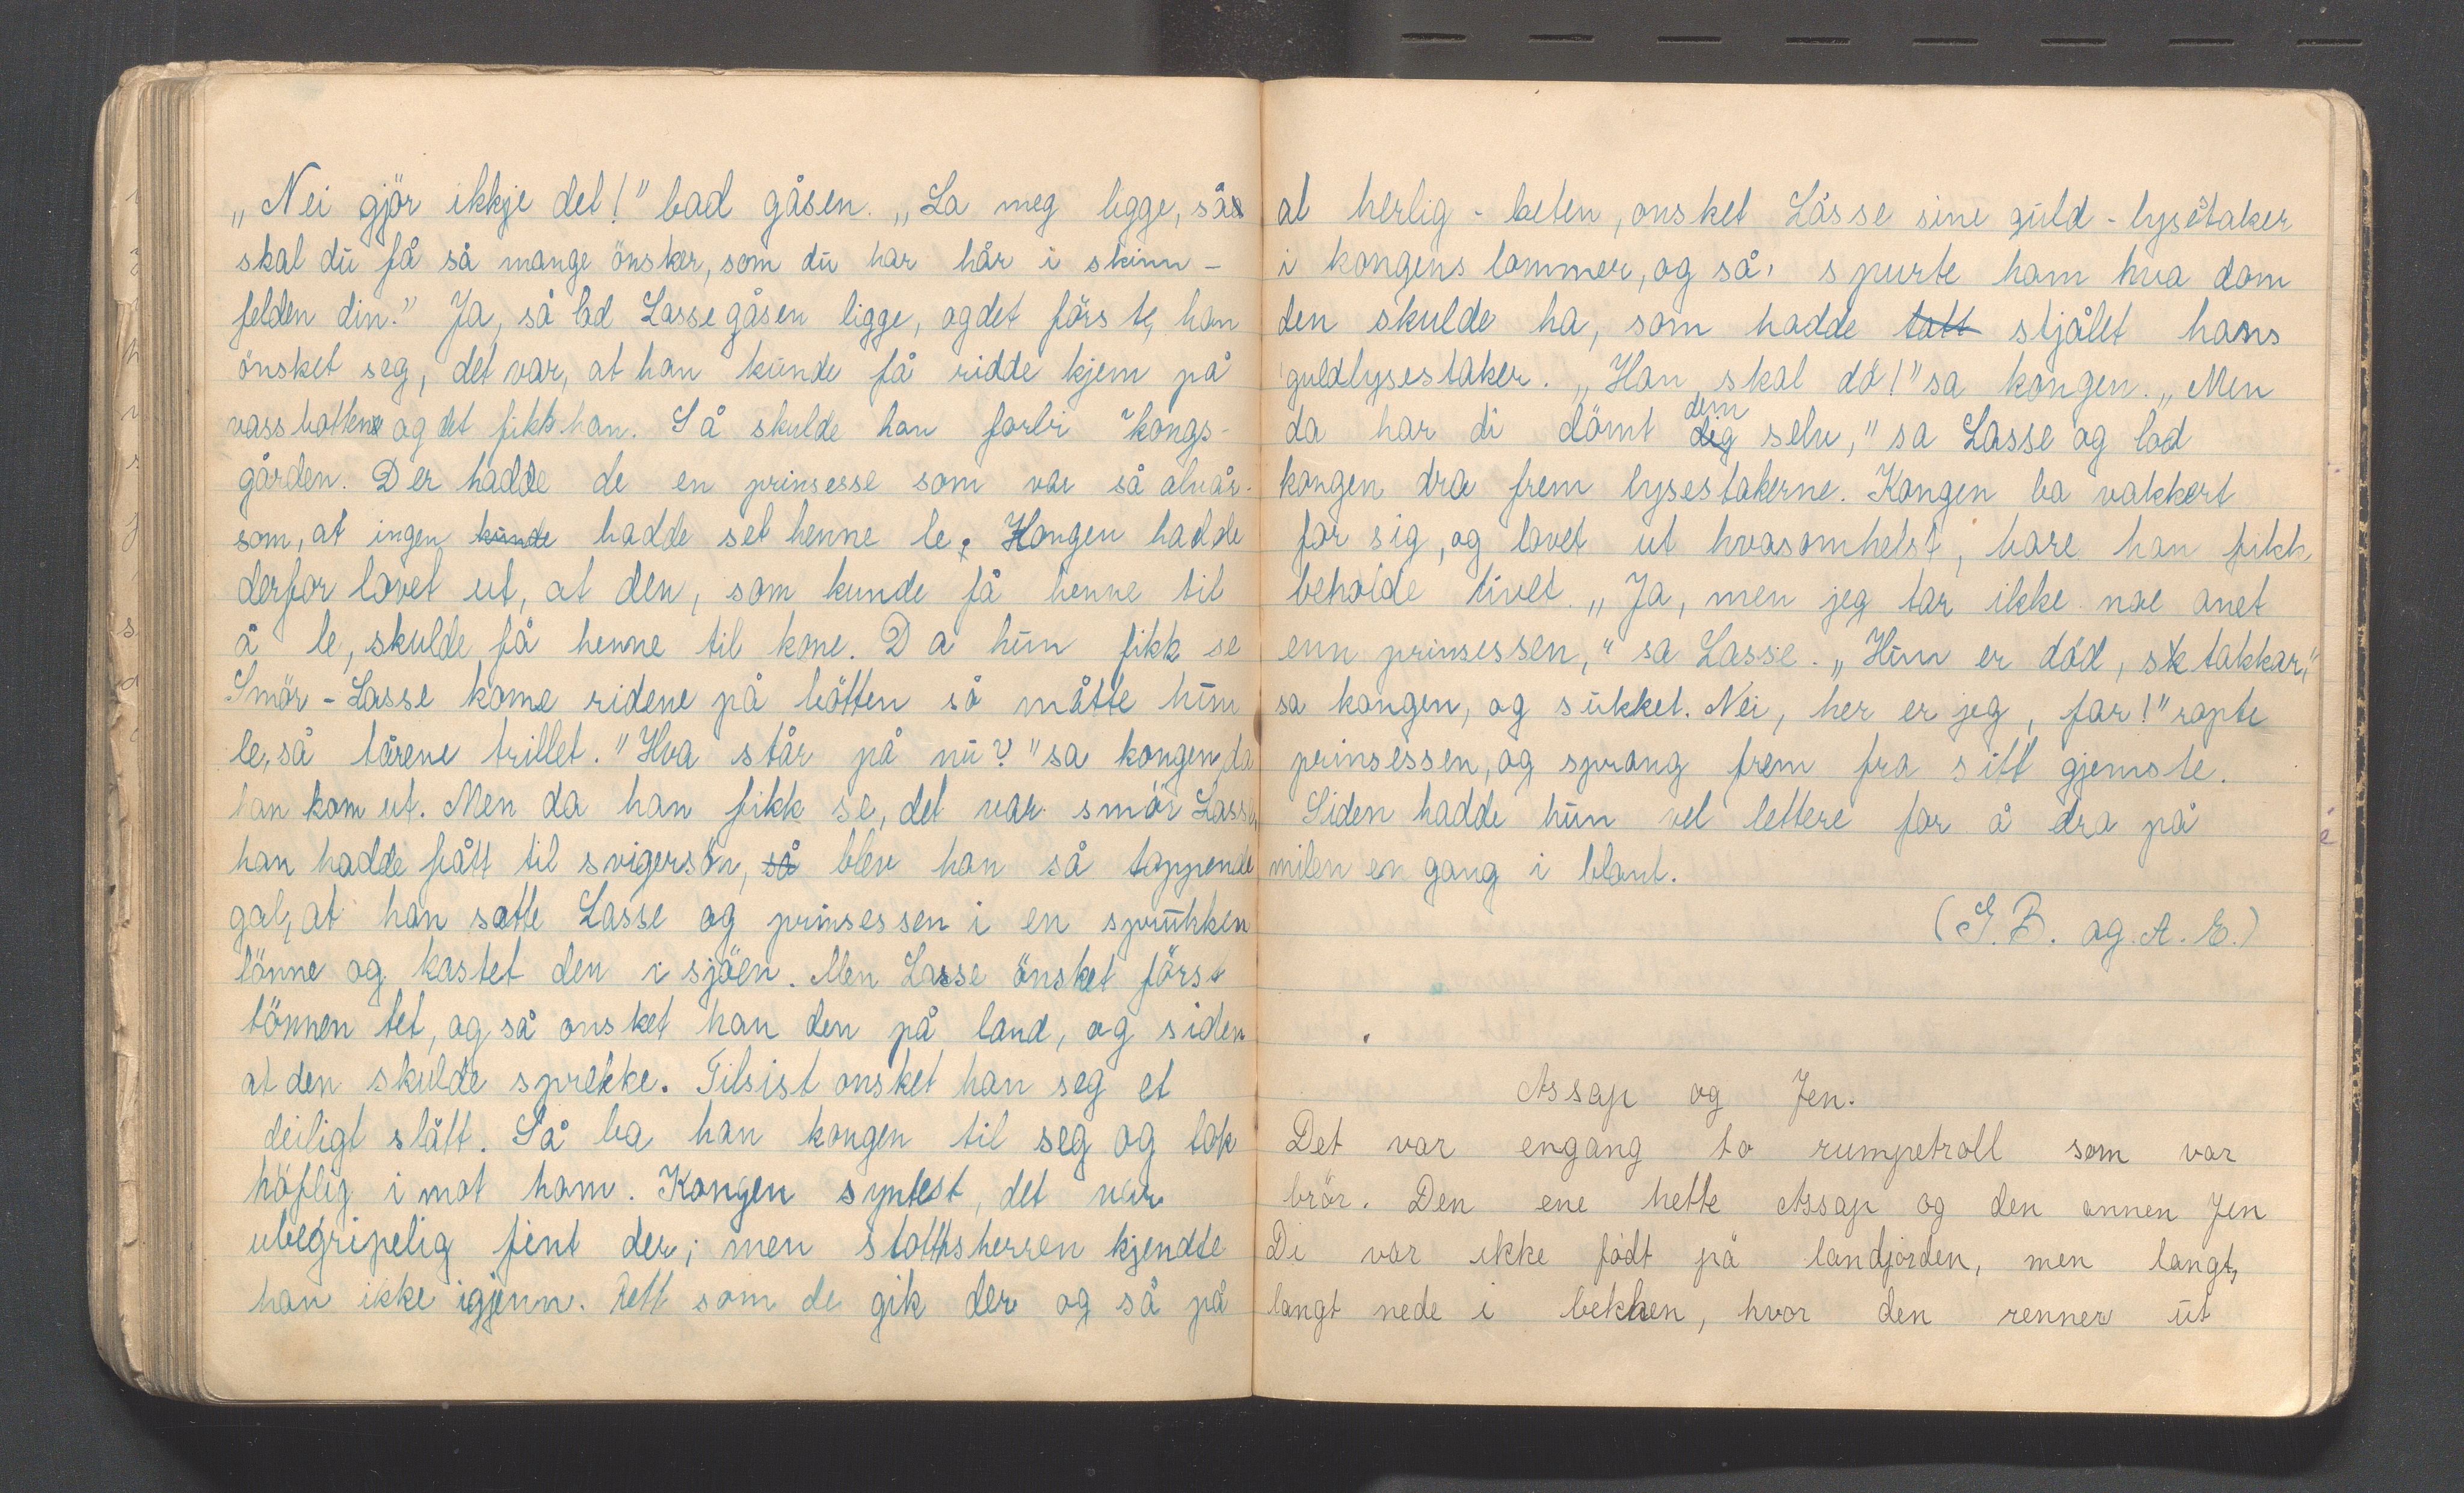 „Nei gjör ikkje det!" bad gåsen. „La meg ligge, så
skal du få så mange önsker, som du har hår i skinn-
felden din." Ja, så lod Lasse gåsen ligge, og det förste, han
önsket seg, det var, at han kunde få ridde hjem på
vassbötten og det fikk han. Så skulde han forbi kongs-
gården. Der hadde de en prinsesse som var så alvår-
som, at ingen kunde hadde set henne le. Kongen hadde
derfor lovet ut, at den, som kunde få henne til
å le, skulde få henne til kone. Da hun fikk se
Smör-Lasse kome ridene på bötten så måtte hun
le, så tårene trillet. "Hva står på nu?" sa kongen, da
han kom ut. Men da han fikk se, det var smör Lasse,
han hadde fått til svigersön, så blev han så toppende
gal, at han satte Lasse og prinsessen i en sprukken
tönne og kastet den i sjöen. Men Lasse önsket först
tönnen tet, og så onsket han den på land, og siden
at den skulde sprekke. Tilsist onsket han seg et
deiligt slått. Så ba han kongen til seg og tok
höflig i mot ham. Kongen syntest, det var
ubegripelig fint der; men slottsherren kjendte
han ikke igjenn. Rett som de gik der og så på
al herlig-heten, onsket Lasse sine guld-lysetaker
i kongens lommer, og så, spurte ham hva dom
den skulde ha, som hadde tatt stjålet hans
guldlysestaker. „Han skal dö!" sa kongen. „Men
dem
da har di dömt dig selv," sa Lasse og lod
kongen dra frem lysestakerne. Kongen ba vakkert
for sig, og lovet ut hvasomhelst, bare han fikk
beholde livet. „Ja, men jeg tar ikke noe anet
enn prinsessen," sa Lasse. „Hun er död, stakkar,"
sa kongen, og sukket. Nei, her er jeg, far!" ropte
prinsessen, og sprang frem fra sitt gjemste.
Siden hadde hun vel lettere for å dra på
milen en gang i blant.
(G. B. og A. E.)
Assap og Jen.
Det var engang to rumpetroll som var
brör. Den ene hette Assap og den annen Jen
Di var ikke födt på landjorden, men langt,
langt nede i bekken, hvor den renner ut